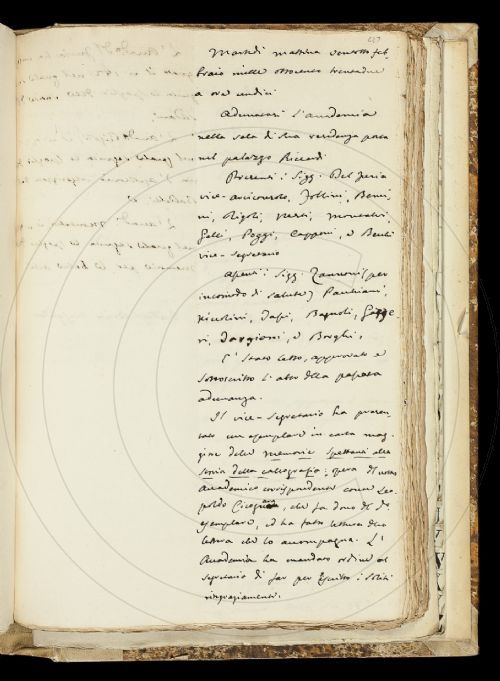 Martedì mattina ventotto feb-
braio mille ottocento trentadue
a ore undici
Adunatasi l'accademia
nella sala di sua residenza posta
nel palazzo Riccardi
Presenti i Sigg: Del Furia
vice-arciconsolo, Follini, Benci-
ni, Rigoli, Nesti, Montalvi,
Gelli, Poggi, Capponi, e Becchi
vice-segretario
Assenti i Sigg: Zannoni (per
incomodo di salute) Pauliani,
Niccolini, Bagnoli, Gazze-
ri, Targioni, e Borghi,
È stato letto, approvato e
sottoscritto l'atto della passata
adunanza.
Il vice-segretario ha presen-
tato un esemplare in carta mag-
giore delle memorie spettanti alla
storia della calcografia; opera di
Accademico corrispondente conte Leo-
poldo Cicognara, che fa dono di d.o
esemplare, ed ha fatto lettura della
lettera che lo accompagna. L'
Accademia ha mandato ordine al
segretario di far per iscritto i soliti
ringraziamenti.